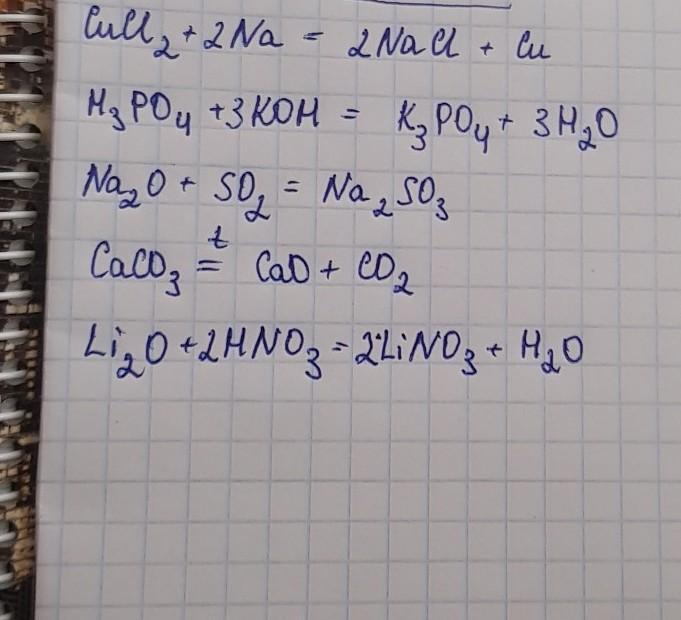 CuCl₂ + 2Na = 2NaCl + Cu
H₃PO₄ + 3KOH = K₃PO₄ + 3H₂O
Na₂O + SO₂ = Na₂SO₃
CaCO₃ =ᵗ CaO + CO₂
Li₂O + 2HNO₃ = 2LiNO₃ + H₂O